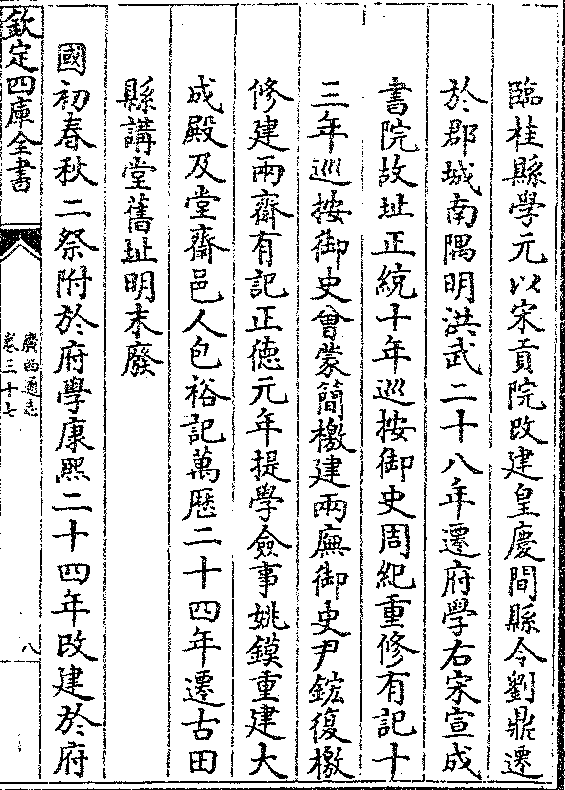 臨桂縣學元以宋貢院改建皇慶間縣令劉鼎遷
於郡城南隅明洪武二十八年遷府學右宋宣成
書院故址正統十年巡按御史周紀重修有記十
三年巡按御史曾蒙簡檄建兩廡御史尹鋐復檄
修建兩齋有記正德元年提學僉事姚鏌重建大
成殿及堂齋邑人包裕記萬歷二十四年遷古田
縣講堂舊址明末廢
國初春秋二祭附於府學康熙二十四年改建於府
欽定四庫全書
廣西通志
卷三十七
八